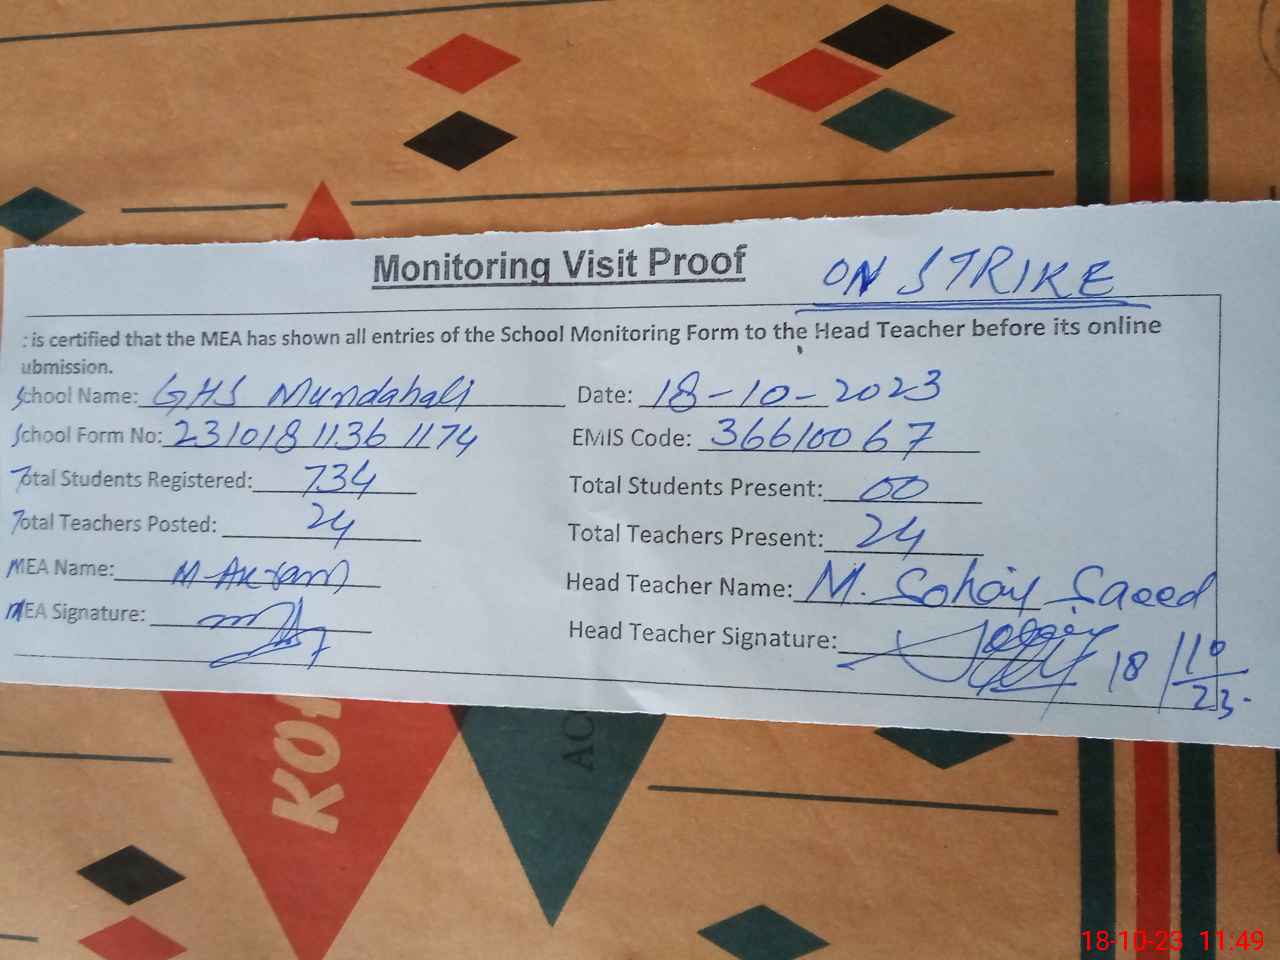 Monitoring Visit Proof ON STRIKE
: is certified that the MEA has shown all entries of the School Monitoring Form to the Head Teacher before its online
ubmission.
School Name: GHS Mundahali Date: 18-10-2023
School Form No: 231018 1136 1174 EMIS Code: 36610067
Total Students Registered: 734 Total Students Present: 00
Total Teachers Posted: 24 Total Teachers Present: 24
MEA Name: M-Akram Head Teacher Name: M. Sohail Saeed
MEA Signature: Head Teacher Signature: 18/10/23.
KOH
AC
18-10-23 11:49